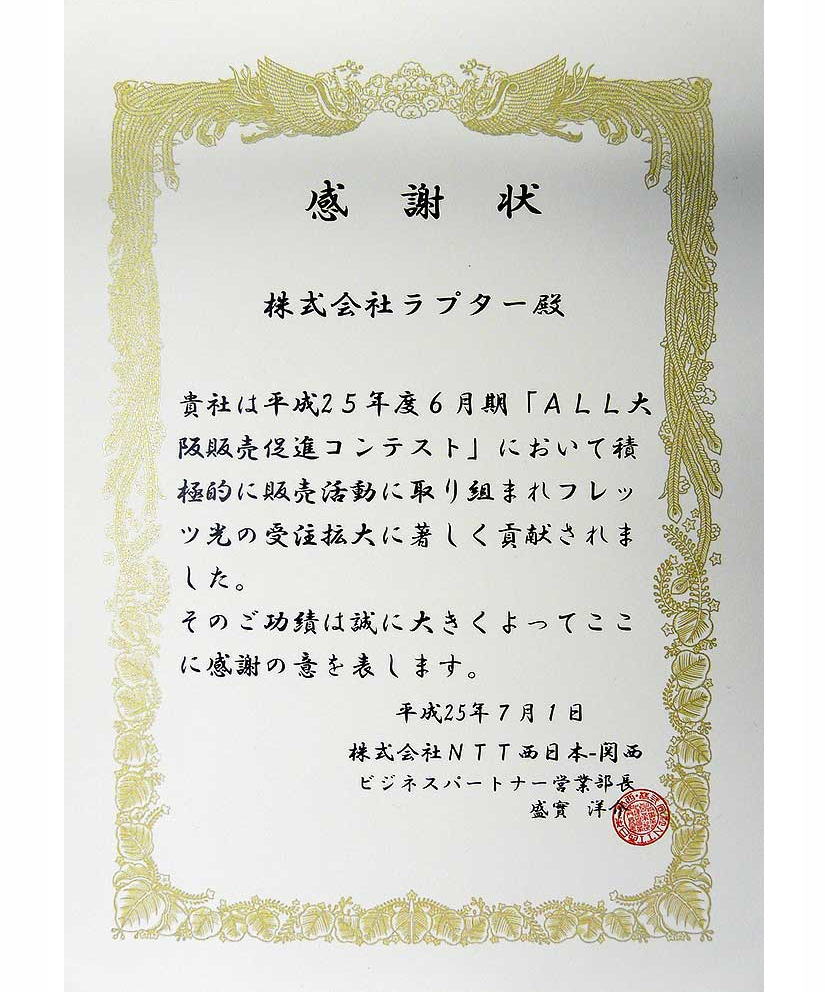 感謝状
株式会社ラプター殿
貴社は平成25年度6月期「ALL大
阪販売促進コンテスト」において積
極的に販売活動に取り組まれフレッ
ツ光の受注拡大に著しく貢献されま
した。
そのご功績は誠に大きくよってここ
に感謝の意を表します。
平成25年7月1日
株式会社NTT西日本-関西
ビジネスパートナー営業部長
盛實 洋